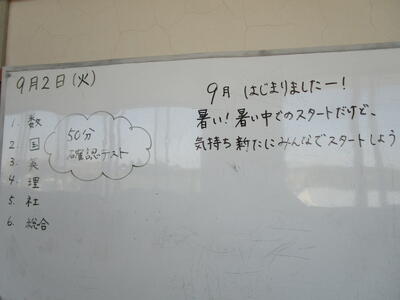 9月2日(火)
1. 数
2. 国
3. 英
4. 理
5. 社
6. 総合
50分
確認テスト
9月 はじまりましたー!
暑い!暑い中でのスタートだけど、
気持ち新たにみんなでスタートしよう